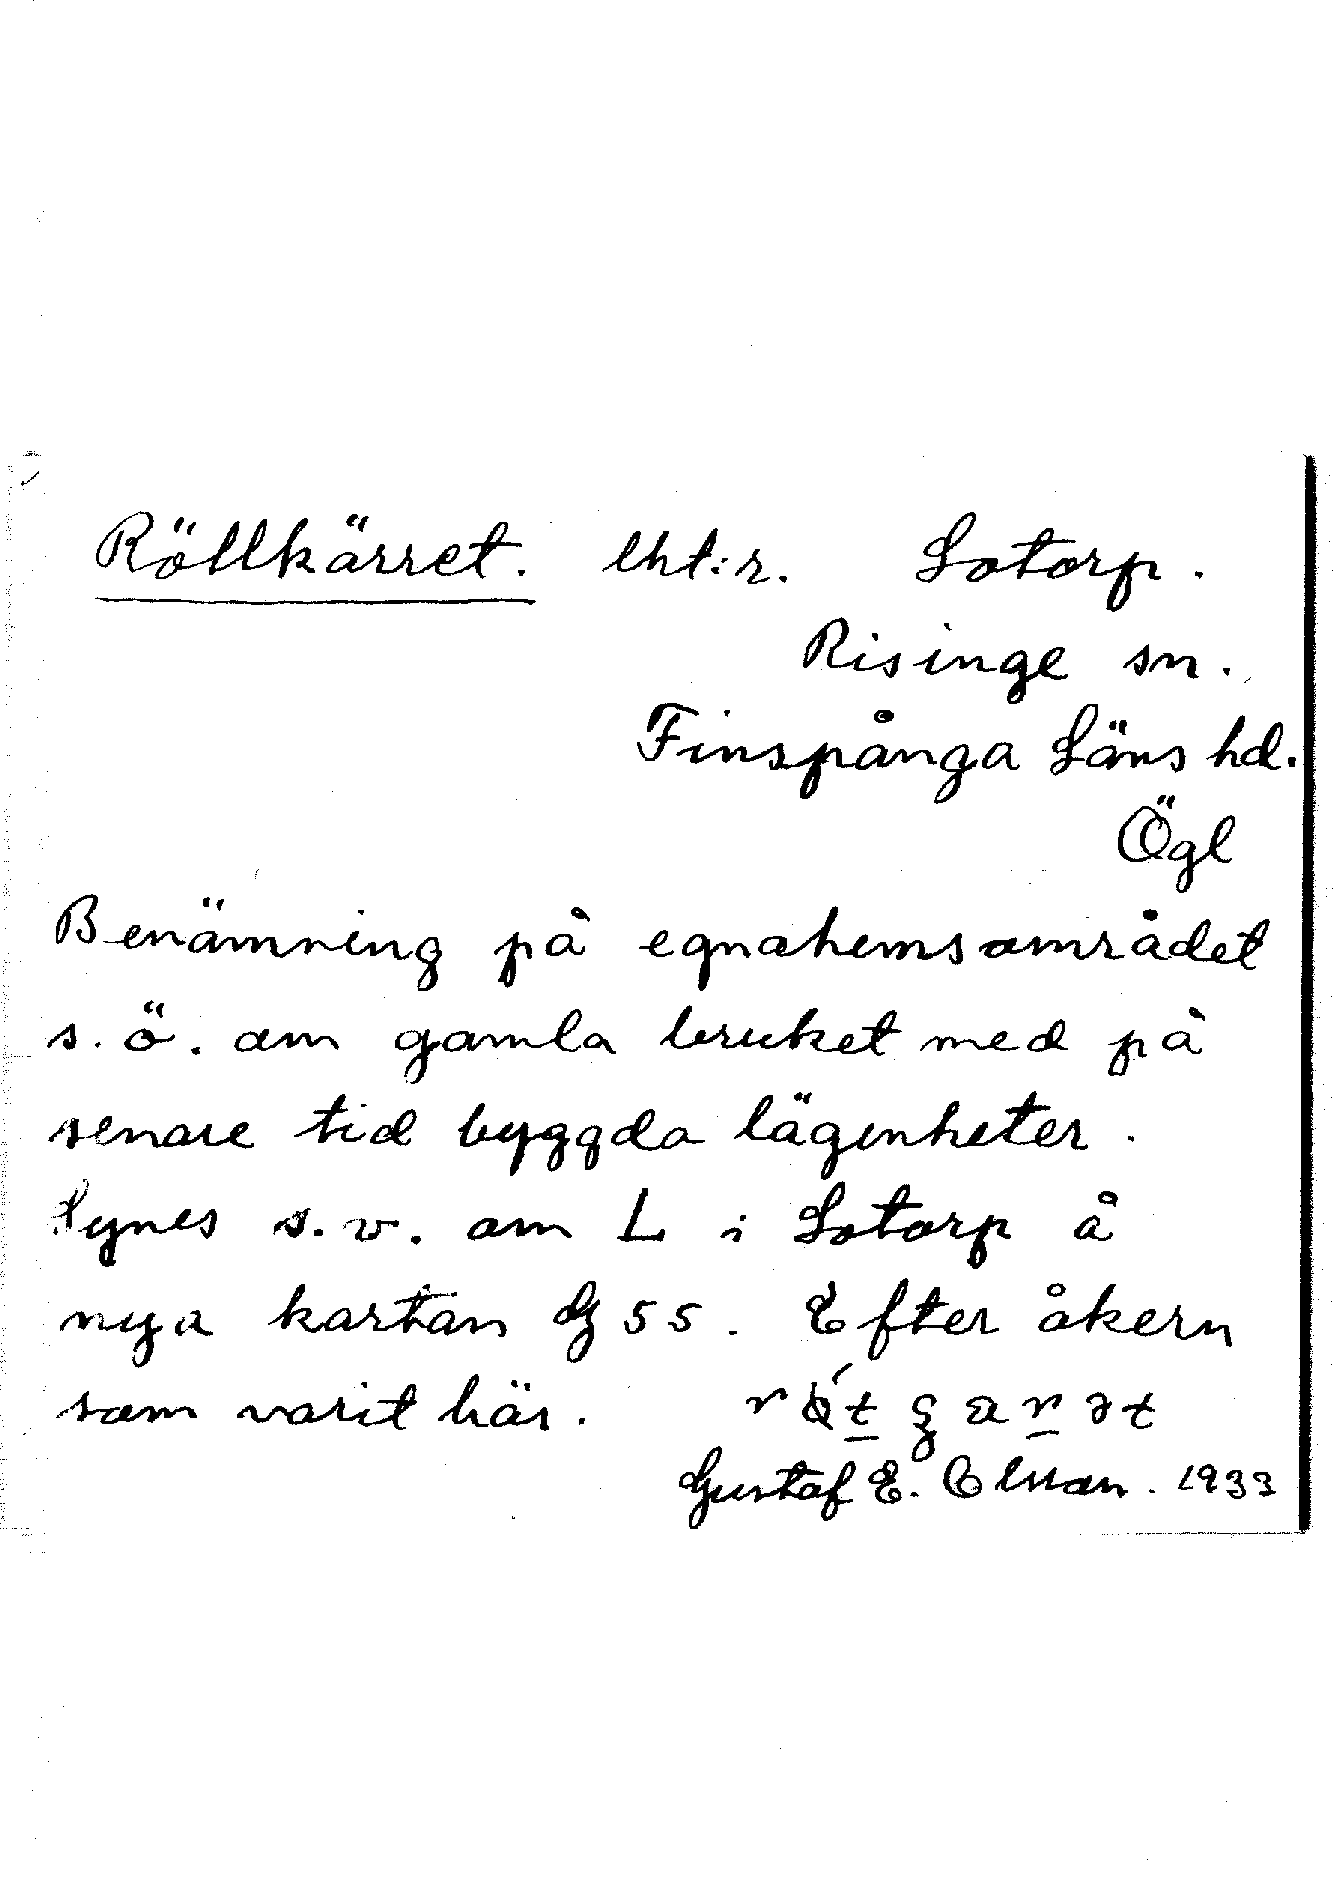 Röllkärret. lht:r. Lotorp.
Risinge sn.
Finspånga Läns hd.
Ögl
Benämning på egnahemsområdet
s.ö. om gamla bruket med på
senare tid byggda lägenheter.
Synes s.v. om L i Lotorp å
nya kartan G 55. Efter åkern
som varit här.
Gustaf E. 1933